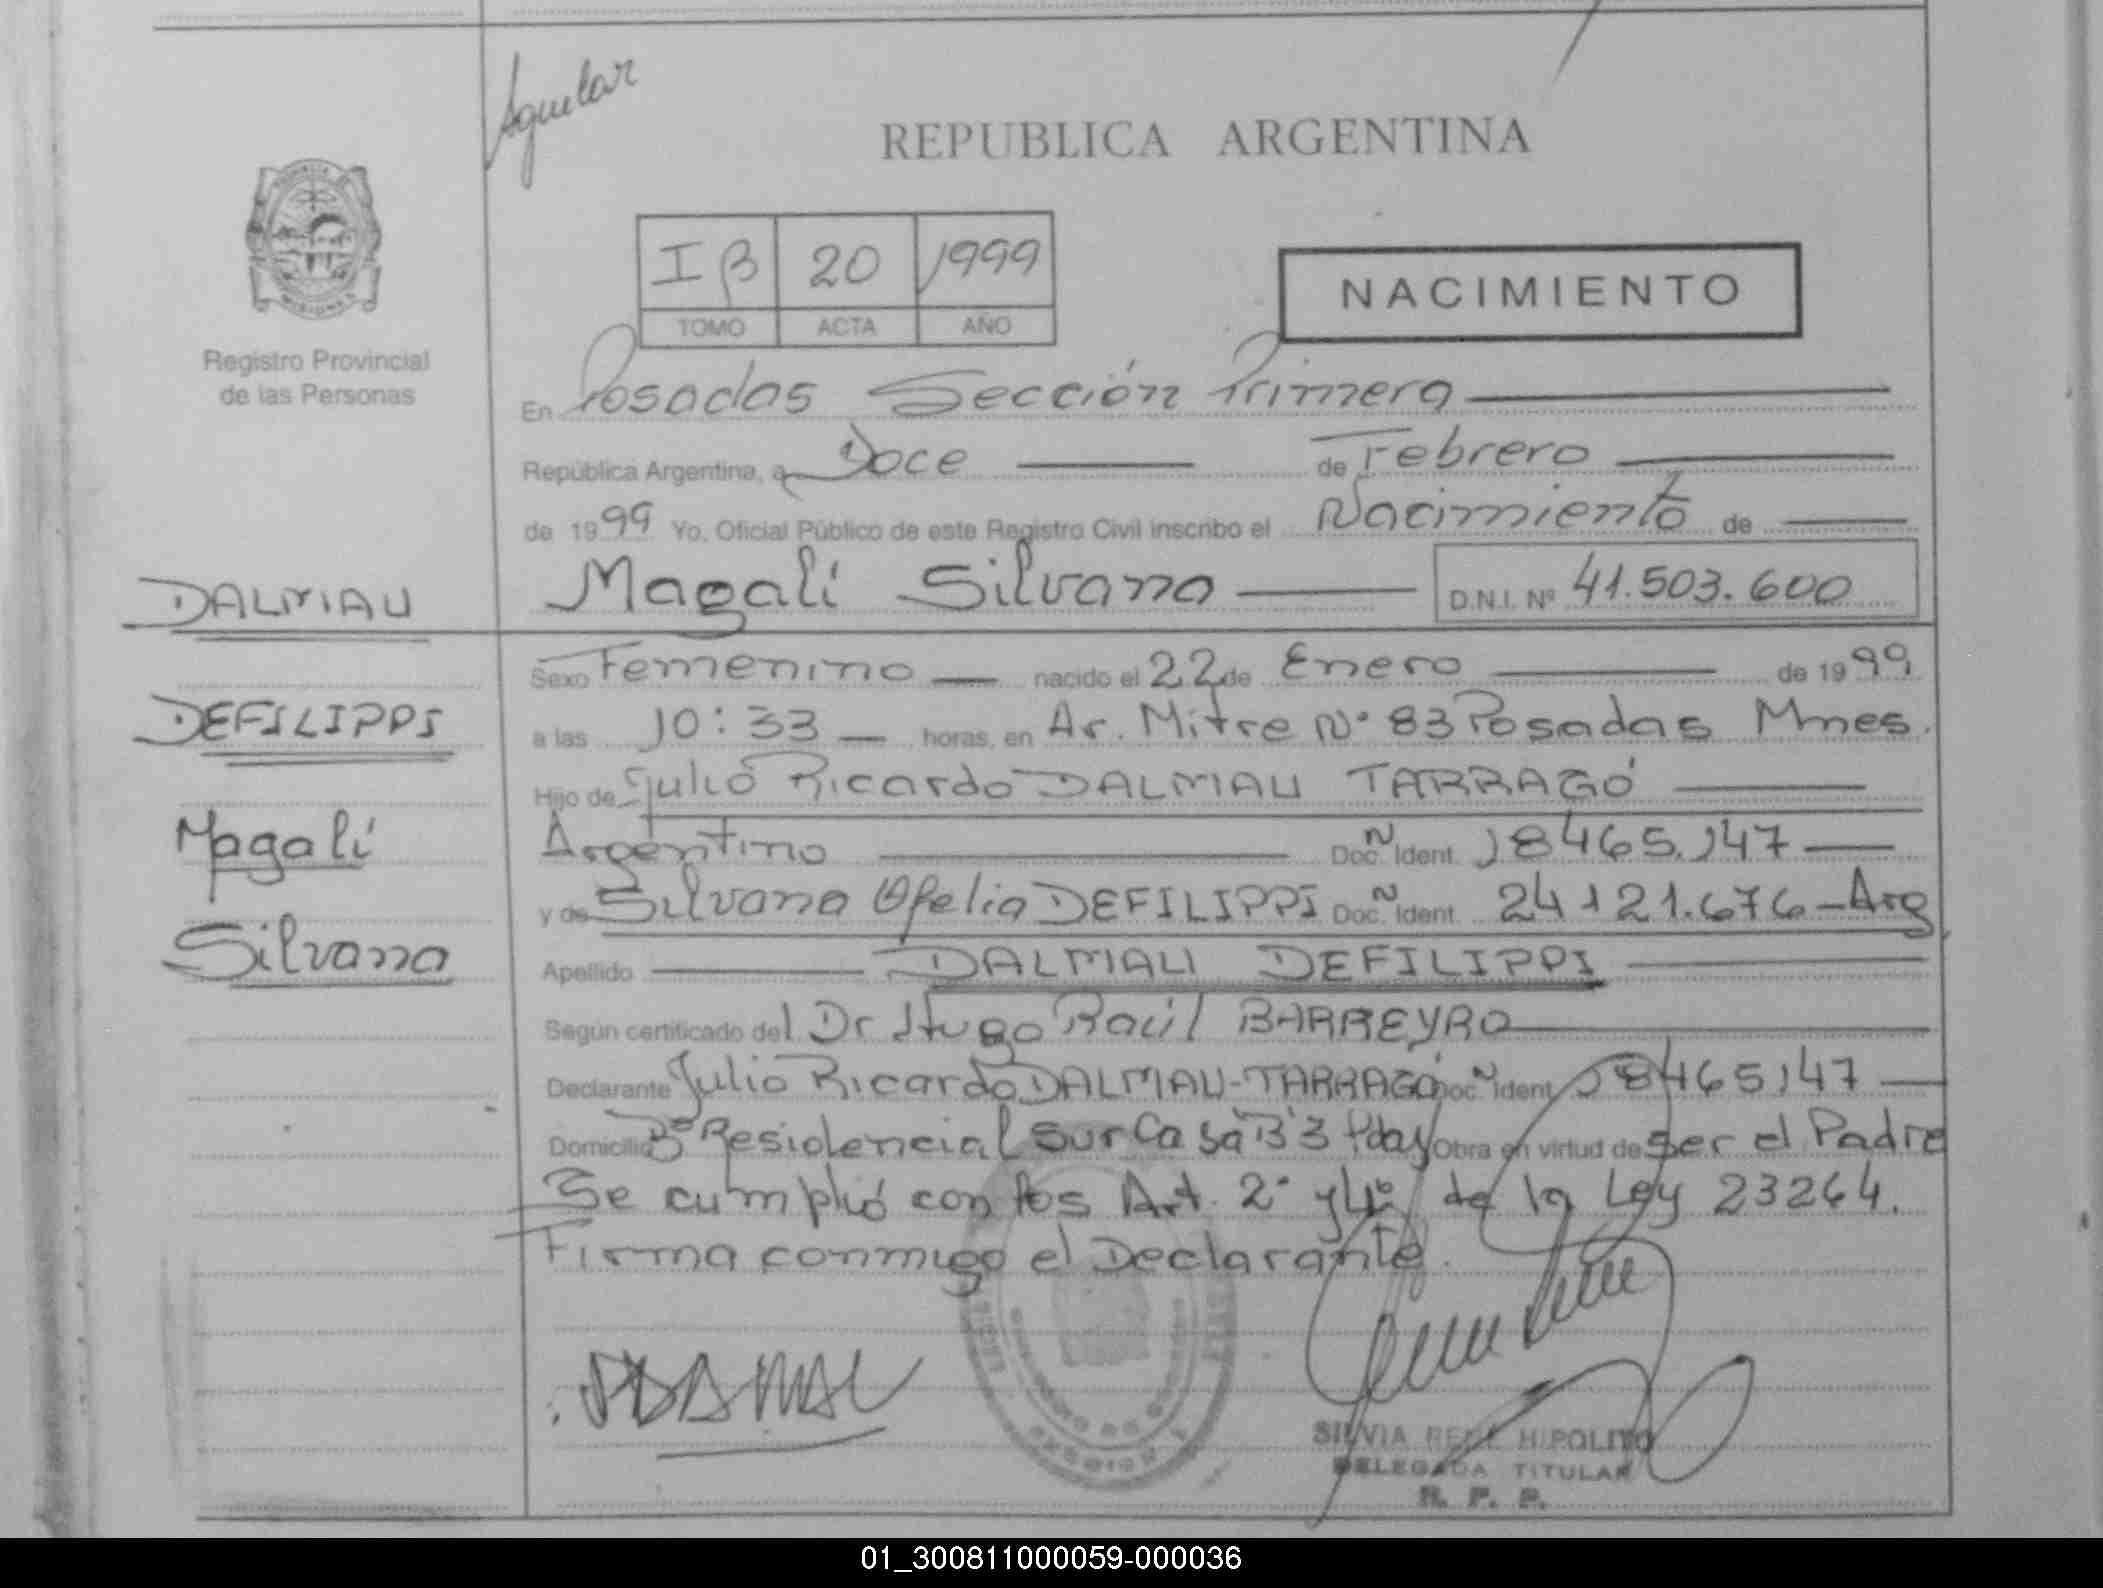 Aguilar
REPUBLICA ARGENTINA
I B 20 1999
TOMO ACTA AÑO
NACIMIENTO
Registro Provincial
de las Personas
En Posadas Sección Primera
República Argentina, a Doce de Febrero
de 1999 Yo, Oficial Público de este Registro Civil inscribo el Nacimiento de
Magalí Silvana D.N.I. Nº 41.503.600
DALMAU
DEFILIPPI
Magalí
Silvana
Sexo Femenino nacido el 22 de Enero de 1999
a las 10:33 horas, en Av. Mitre Nº 83 Posadas Mnes.
Hijo de Julio Ricardo DALMAU TARRAGÓ
Argentino Doc. Ident. 18465.147
y de Silvana Ofelia DEFILIPPI Doc. Ident. 24121.676 - Arg
Apellido DALMAU DEFILIPPI
Según certificado del Dr Hugo Raúl BARREYRO
Declarante Julio Ricardo DALMAU-TARRAGÓ Doc. Ident. 18465147
Domicilio Bº Residencial Sur Casa B 3 Pdas Obra en virtud de ser el Padre
Se cumplió con los Art. 2º y 4º de la Ley 23264.
Firma conmigo el Declarante.
SILVIA RENE HIPOLITO
DELEGADA TITULAR
R. P. P.
01_300811000059-000036